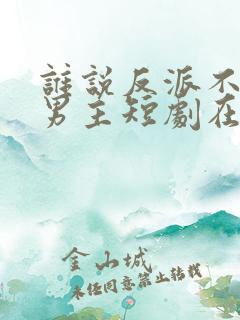 誰說反派不
男主短劇在
金山城
未任同意禁止转载